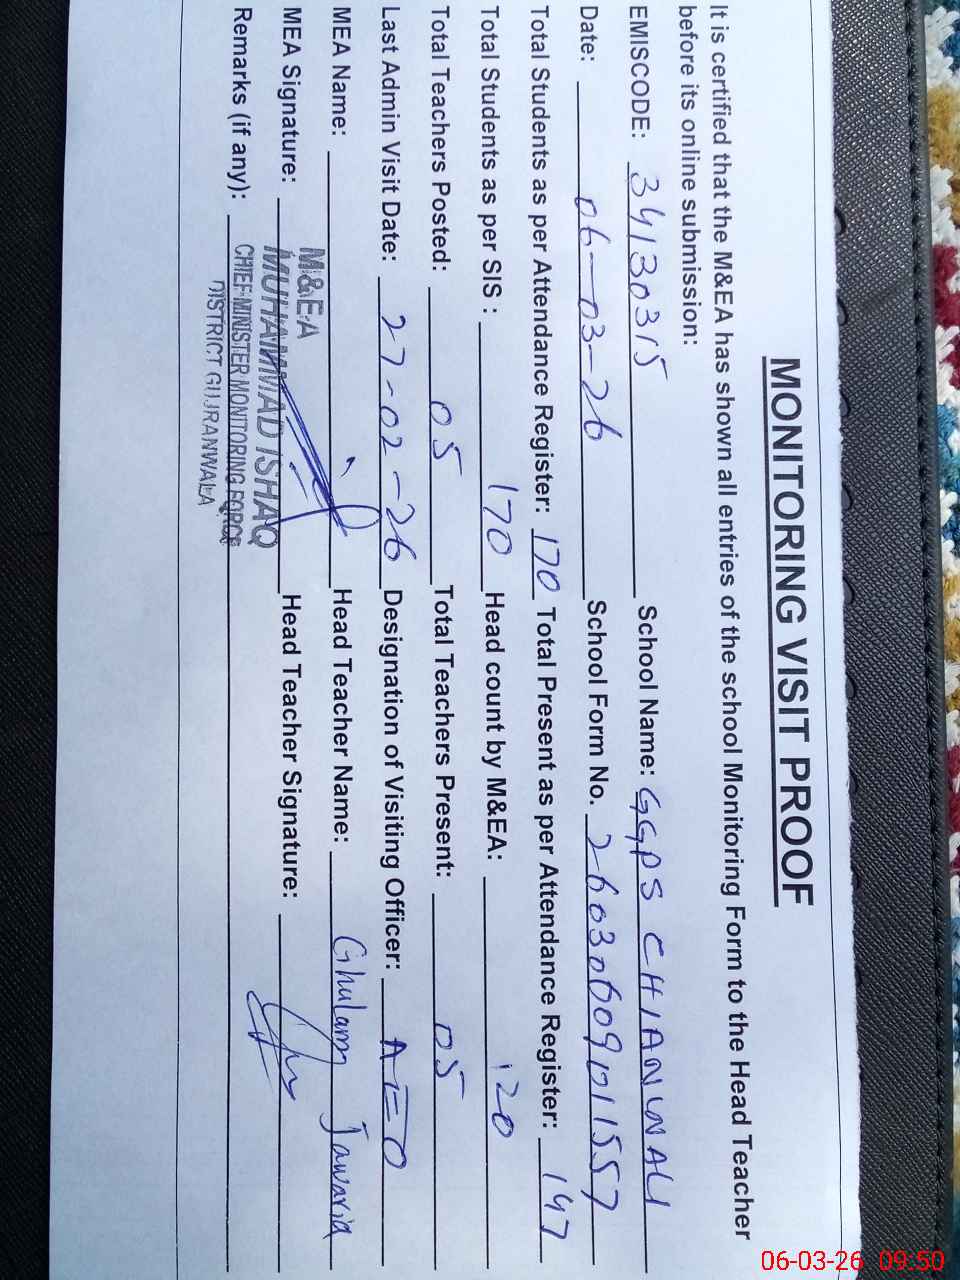 MONITORING VISIT PROOF
It is certified that the M&EA has shown all entries of the school Monitoring Form to the Head Teacher
before its online submission:
EMISCODE: 34130315 School Name: GGPS CHIANWALI
Date: 06-03-26 School Form No. 2603060901557
Total Students as per Attendance Register: 170 Total Present as per Attendance Register: 147
Total Students as per SIS : 170 Head count by M&EA: 120
Total Teachers Posted: 05 Total Teachers Present: 05
Last Admin Visit Date: 27-02-26 Designation of Visiting Officer: AEO
MEA Name: Head Teacher Name: Ghulam Jawaria
MEA Signature: Head Teacher Signature:
Remarks (if any):
M&EA
MUHAMMAD ISHAQ
CHIEF MINISTER MONITORING FORCE
DISTRICT GUJRANWALA
06-03-26 09:50